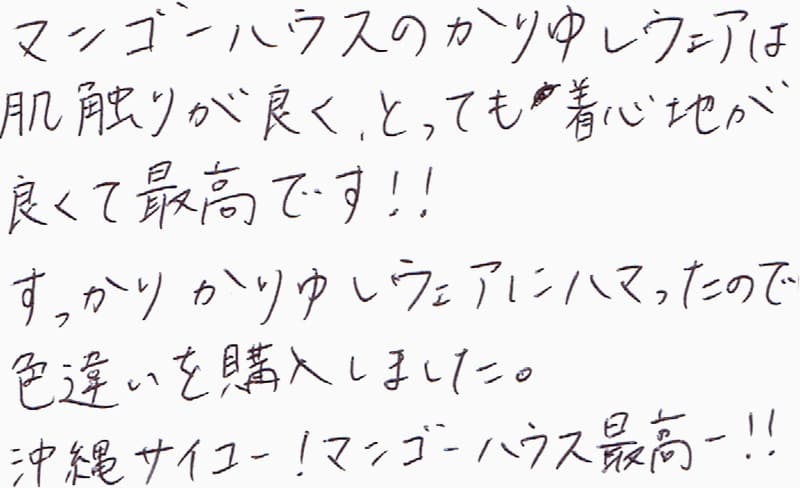 マンゴーハウスのかりゆしウェアは
肌触りが良く、とっても着心地が
良くて最高です!!
すっかりかりゆしウェアにハマったので
色違いを購入しました。
沖縄サイコー!マンゴーハウス最高ー!!